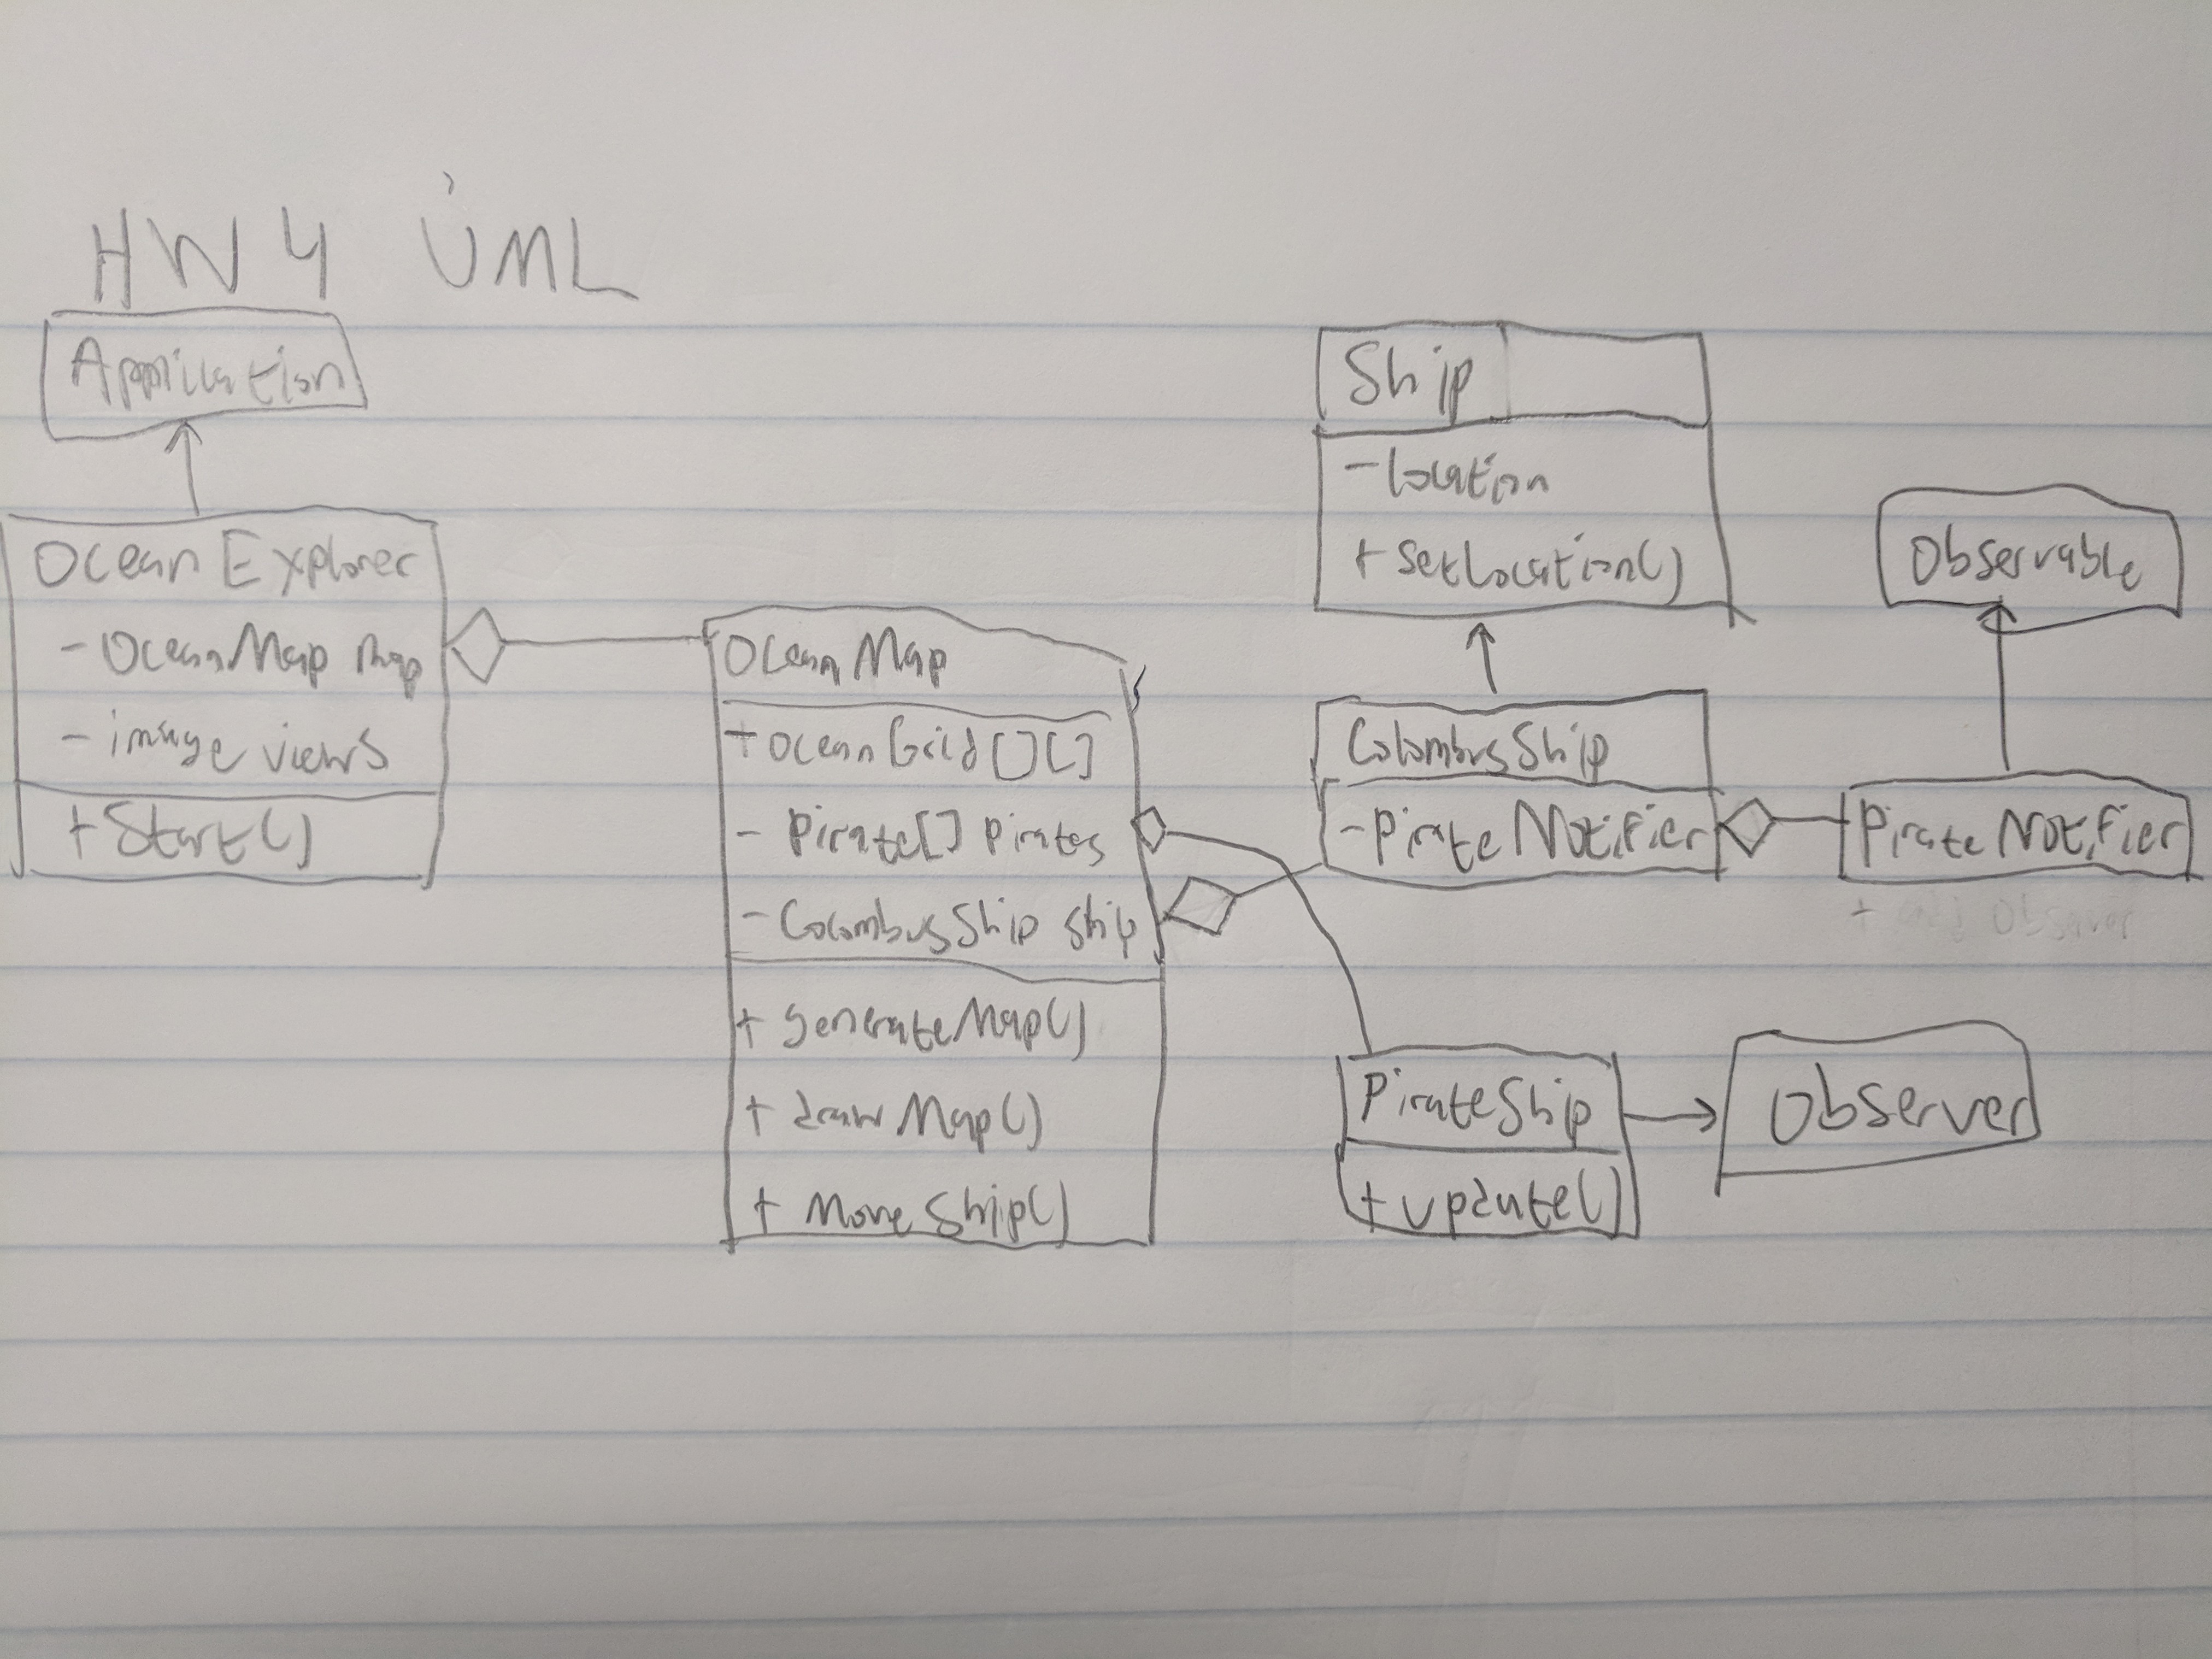 HW 4 UML
Application
OceanExplorer
- OceanMap map
- image views
+ Start()
OceanMap
+ OceanGrid[][]
- Pirate[] Pirates
- ColombusShip ship
+ generateMap()
+ drawMap()
+ MoveShip()
Ship
- location
+ setLocation()
ColombusShip
- PirateNotifier
Observable
PirateNotifier
+ Observer
PirateShip
+ update()
Observer